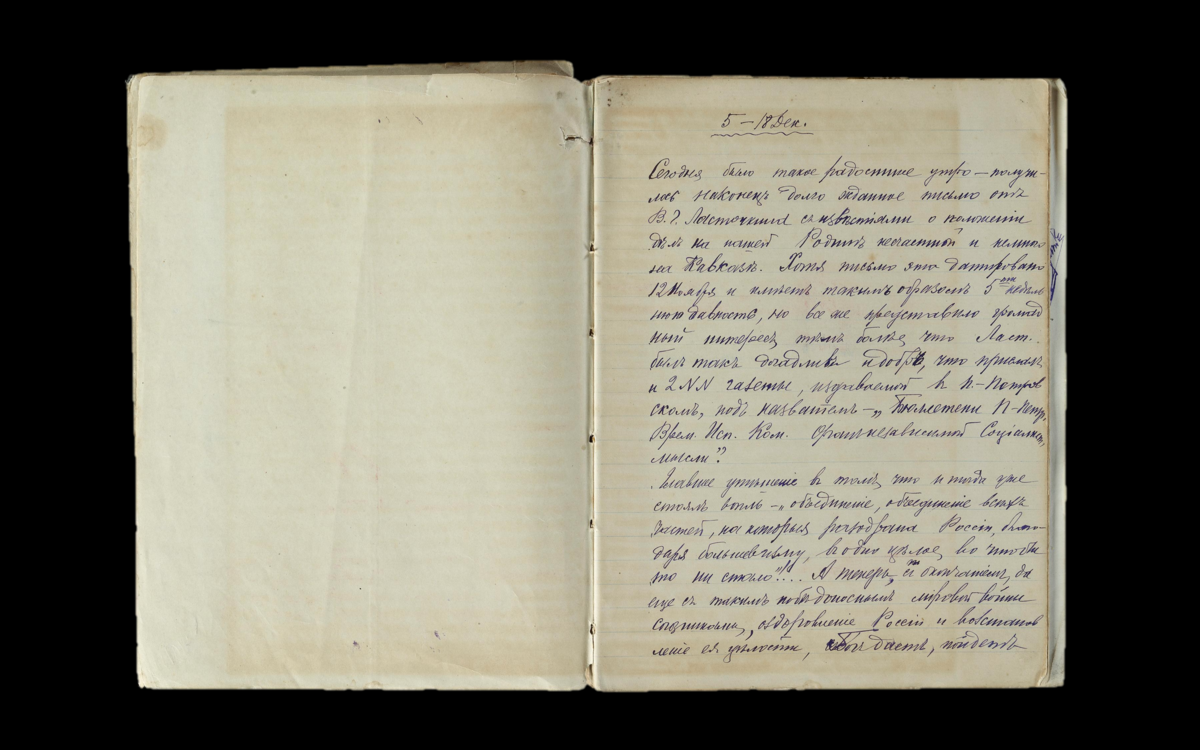 5 – 18 Дек.
Сегодня было такое радостное утро – получи-
лось наконецъ долго жданное письмо отъ
В. Г. Ласточкина съ извѣстіями о положеніи
дѣлъ на нашей Родинѣ несчастной и немного
на Кавказѣ. Хотя письмо это датировано
12 Ноября и имѣетъ такимъ образомъ 5ти недѣль
ную давность, но все же представило громад
ный интересъ тѣмъ болѣе, что Ласт..
былъ такъ догадливъ и добръ, что прислалъ
и 2 NN газеты, издаваемой въ П.-Петров
скомъ, подъ названіемъ – „Бюллетени П-Петр.
Врем. Исп. Ком. Органъ независимой Соціалист.
мысли"?
Главное утѣшеніе въ томъ, что и тогда уже
стоялъ вопль – „объединеніе, объединеніе всѣхъ
частей, на которыя разодрана Россія, благо-
даря большевизму, въ одно цѣлое, во что бы
то ни стало"!!... А теперь, съ окончаніемъ, да
еще съ такимъ побѣдоноснымъ міровой войны
союзниками, оздоровленіе Россіи и возстанов
леніе ея цѣлости, Богъ дастъ, пойдетъ